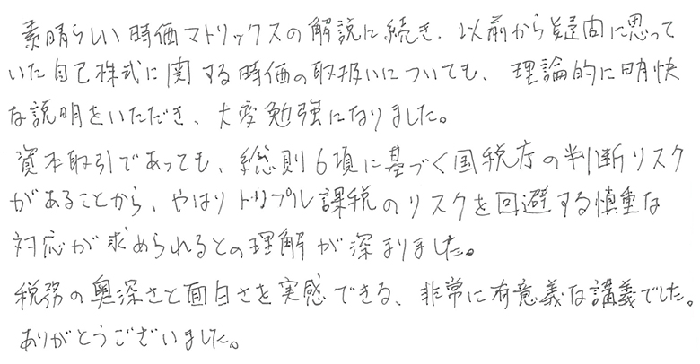 素晴らしい時価マトリックスの解説に続き、以前から疑問に思って
いた自己株式に関する時価の取扱いについても、理論的に明快
な説明をいただき、大変勉強になりました。
資本取引であっても、総則6項に基づく国税庁の判断リスク
があることから、やはりトリプル課税のリスクを回避する慎重な
対応が求められるとの理解が深まりました。
税務の奥深さと面白さを実感できる、非常に有意義な講義でした。
ありがとうございました。